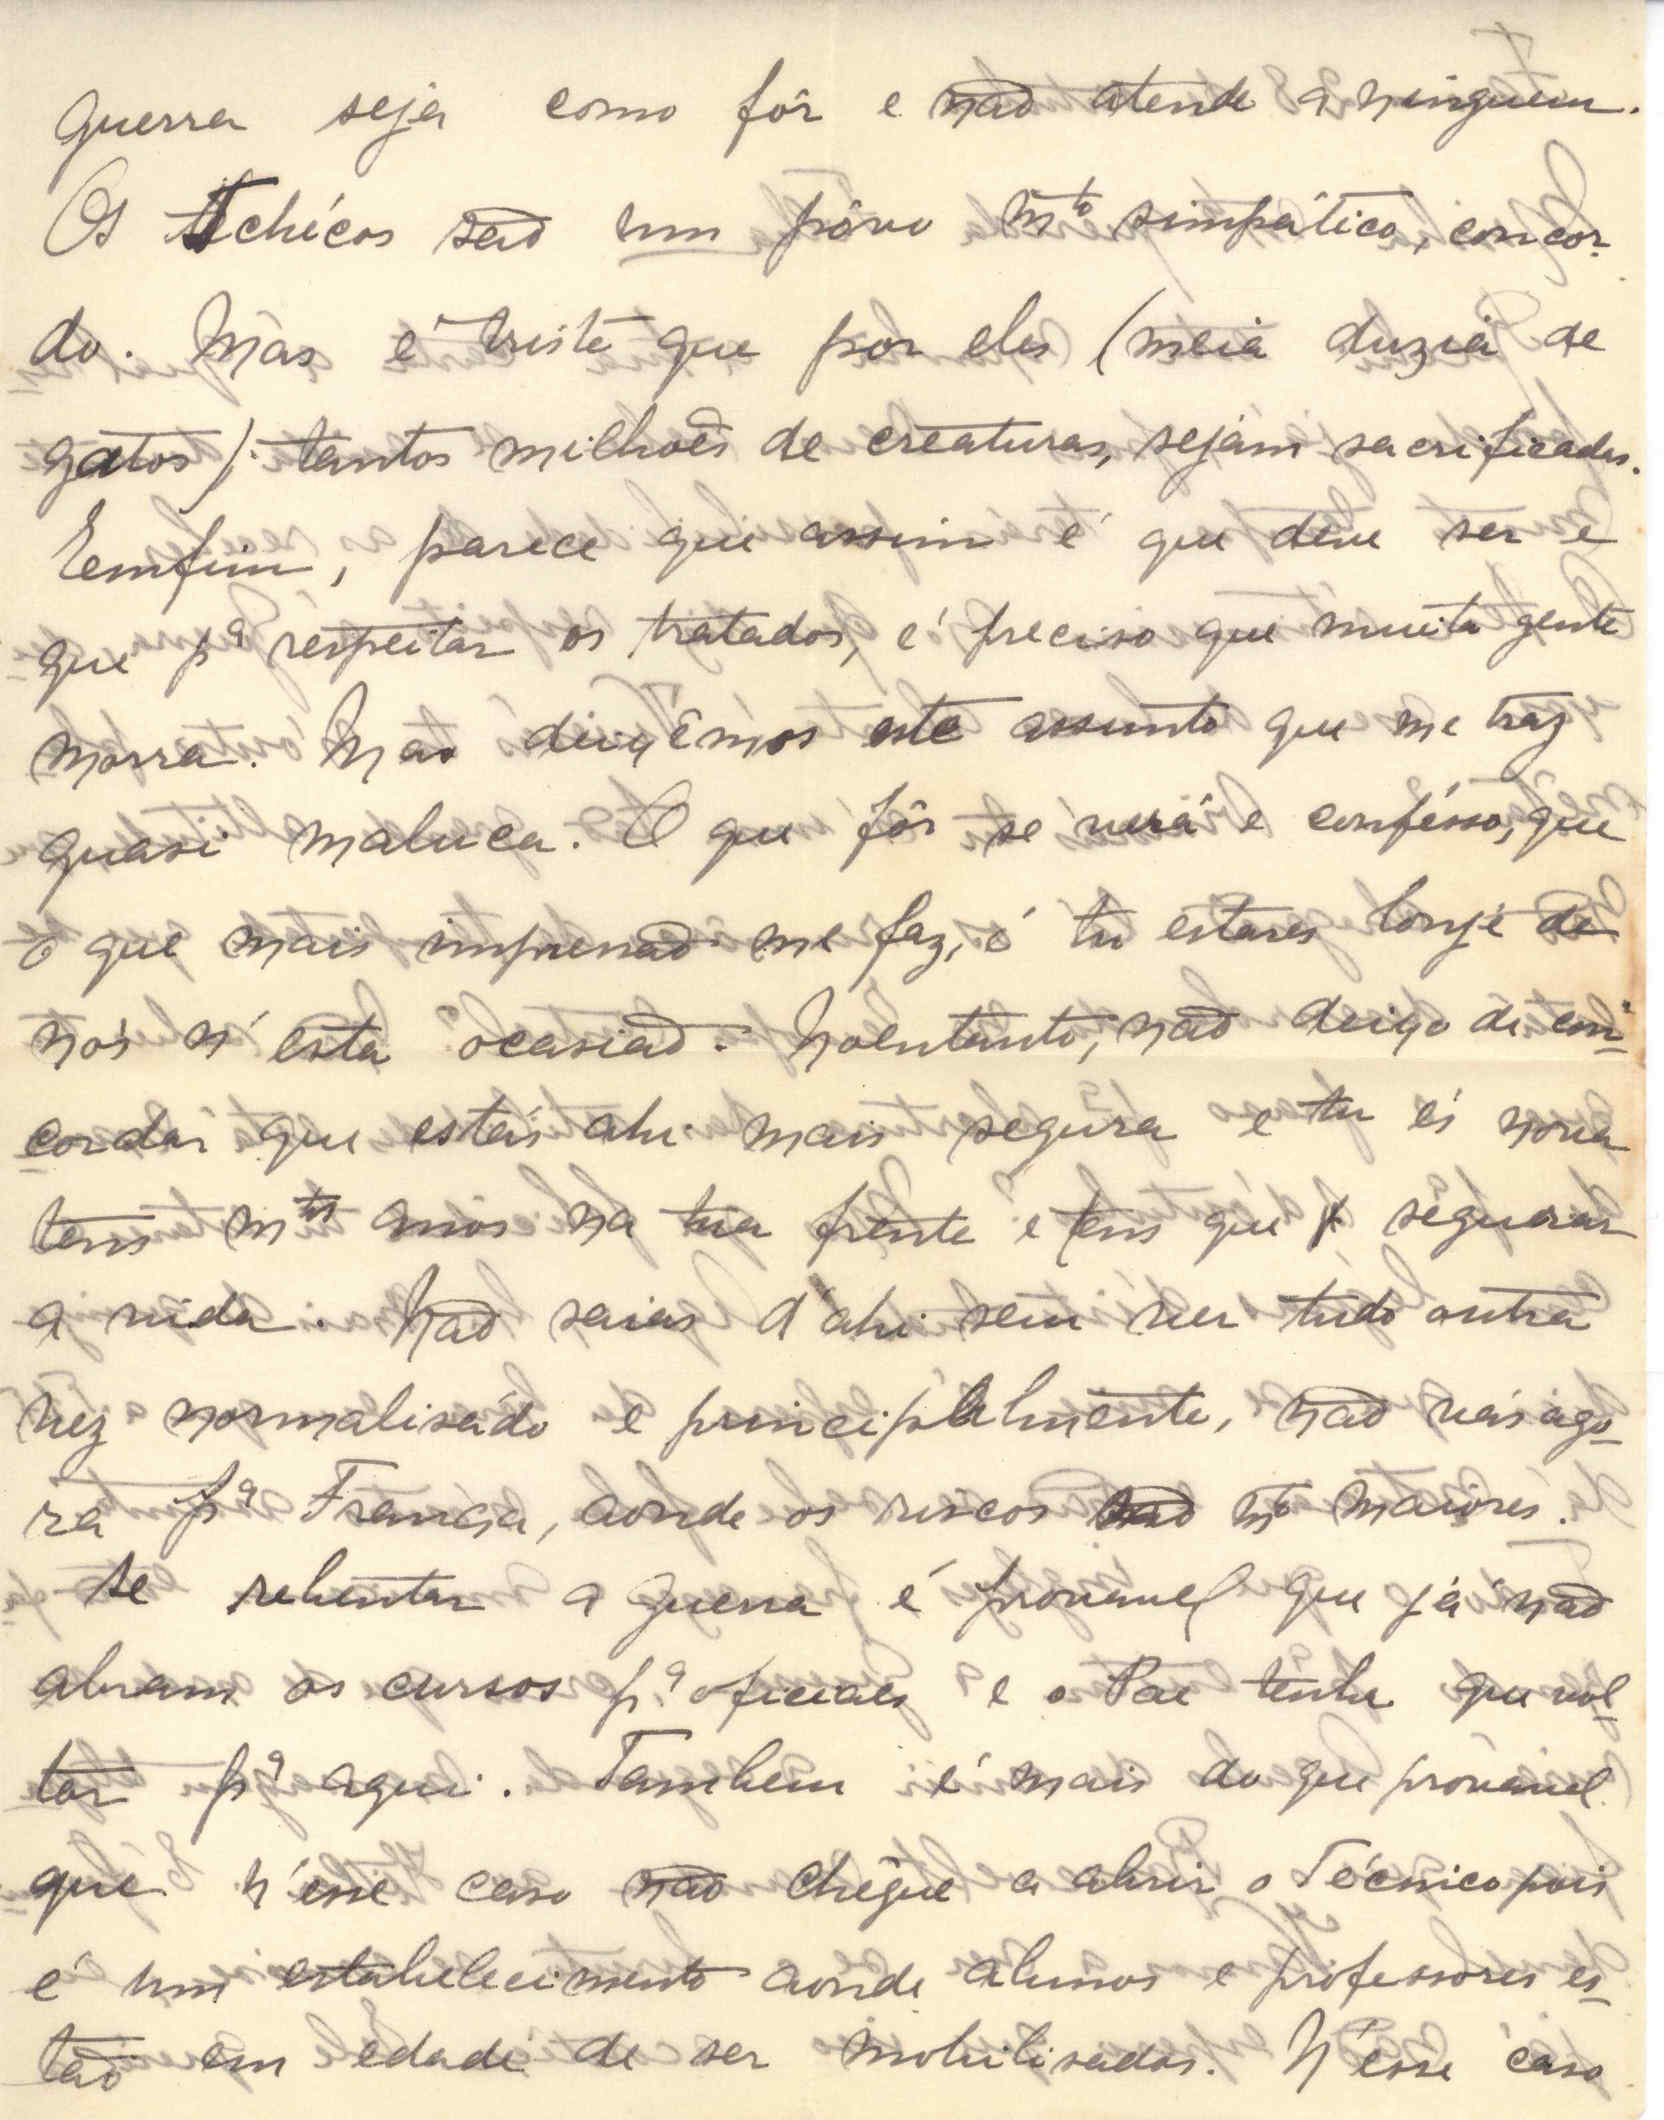 guerra seja como fôr e não atende a ninguem.
Os Tchécos são um pôvo mto simpático, concor-
do. Mas é triste que por eles (meia duzia de
gatos) tantos milhões de creaturas, sejam sacrificadas.
Eemfim, parece que assim é que deve ser e
que pª respeitar os tratados, é preciso que muita gente
morra. Não deixêmos este assunto que me traz
quasi maluca. O que fôr se verá e confésso, que
o que mais impressão me faz, é tu estares longe de
nós n'esta ocasião. Noentanto, não deixo de con-
cordar que estás ahi mais segura e tu és nova
tens mtos anos na tua frente e tens que segurar
a vida. Não saias d'ahi sem ver tudo outra
vez normalisádo e principalmente, não vás ago-
ra pª França, aonde os riscos são mto maiores.
Se rebentar a guerra é provavel que já não
abram os cursos pª oficiaes e o Pae tenha que vol-
tar pª aqui. Tambem é mais do que provavel
que n'esse caso não chêgue a abrir o Técnico pois
é um estabelecimento aonde alunos e professores es-
tão em edade de ser mobilisados. N'esse caso